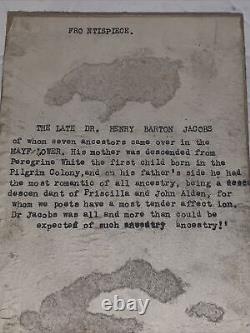 FRO NTISPIECE.
THE LATE DR. HENRY BARTON JACOBS
of whom seven ancestors came over in the
MAYFLOWER. His mother was descended from
Peregrine White the first child born in the
Pilgrim Colony,and on his father's side he had
the most romantic of all ancestry, being a
descen dant of Priscilla and John Alden, for
whom we poets have a most tender affect ion.
Dr Jacobs was all and more than could be
expected of such ancestry ancestry!'